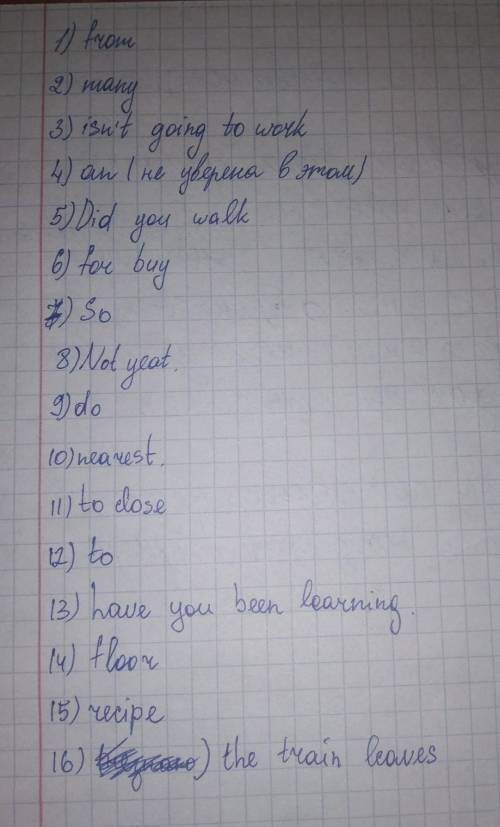 1) from
2) many
3) isn't going to work
4) an (не уверена в этом)
5) Did you walk
6) for buy
7) So
8) Not yeat.
9) do
10) nearest.
11) to close
12) to
13) have you been learning.
14) floor
15) recipe
16) ) the train leaves